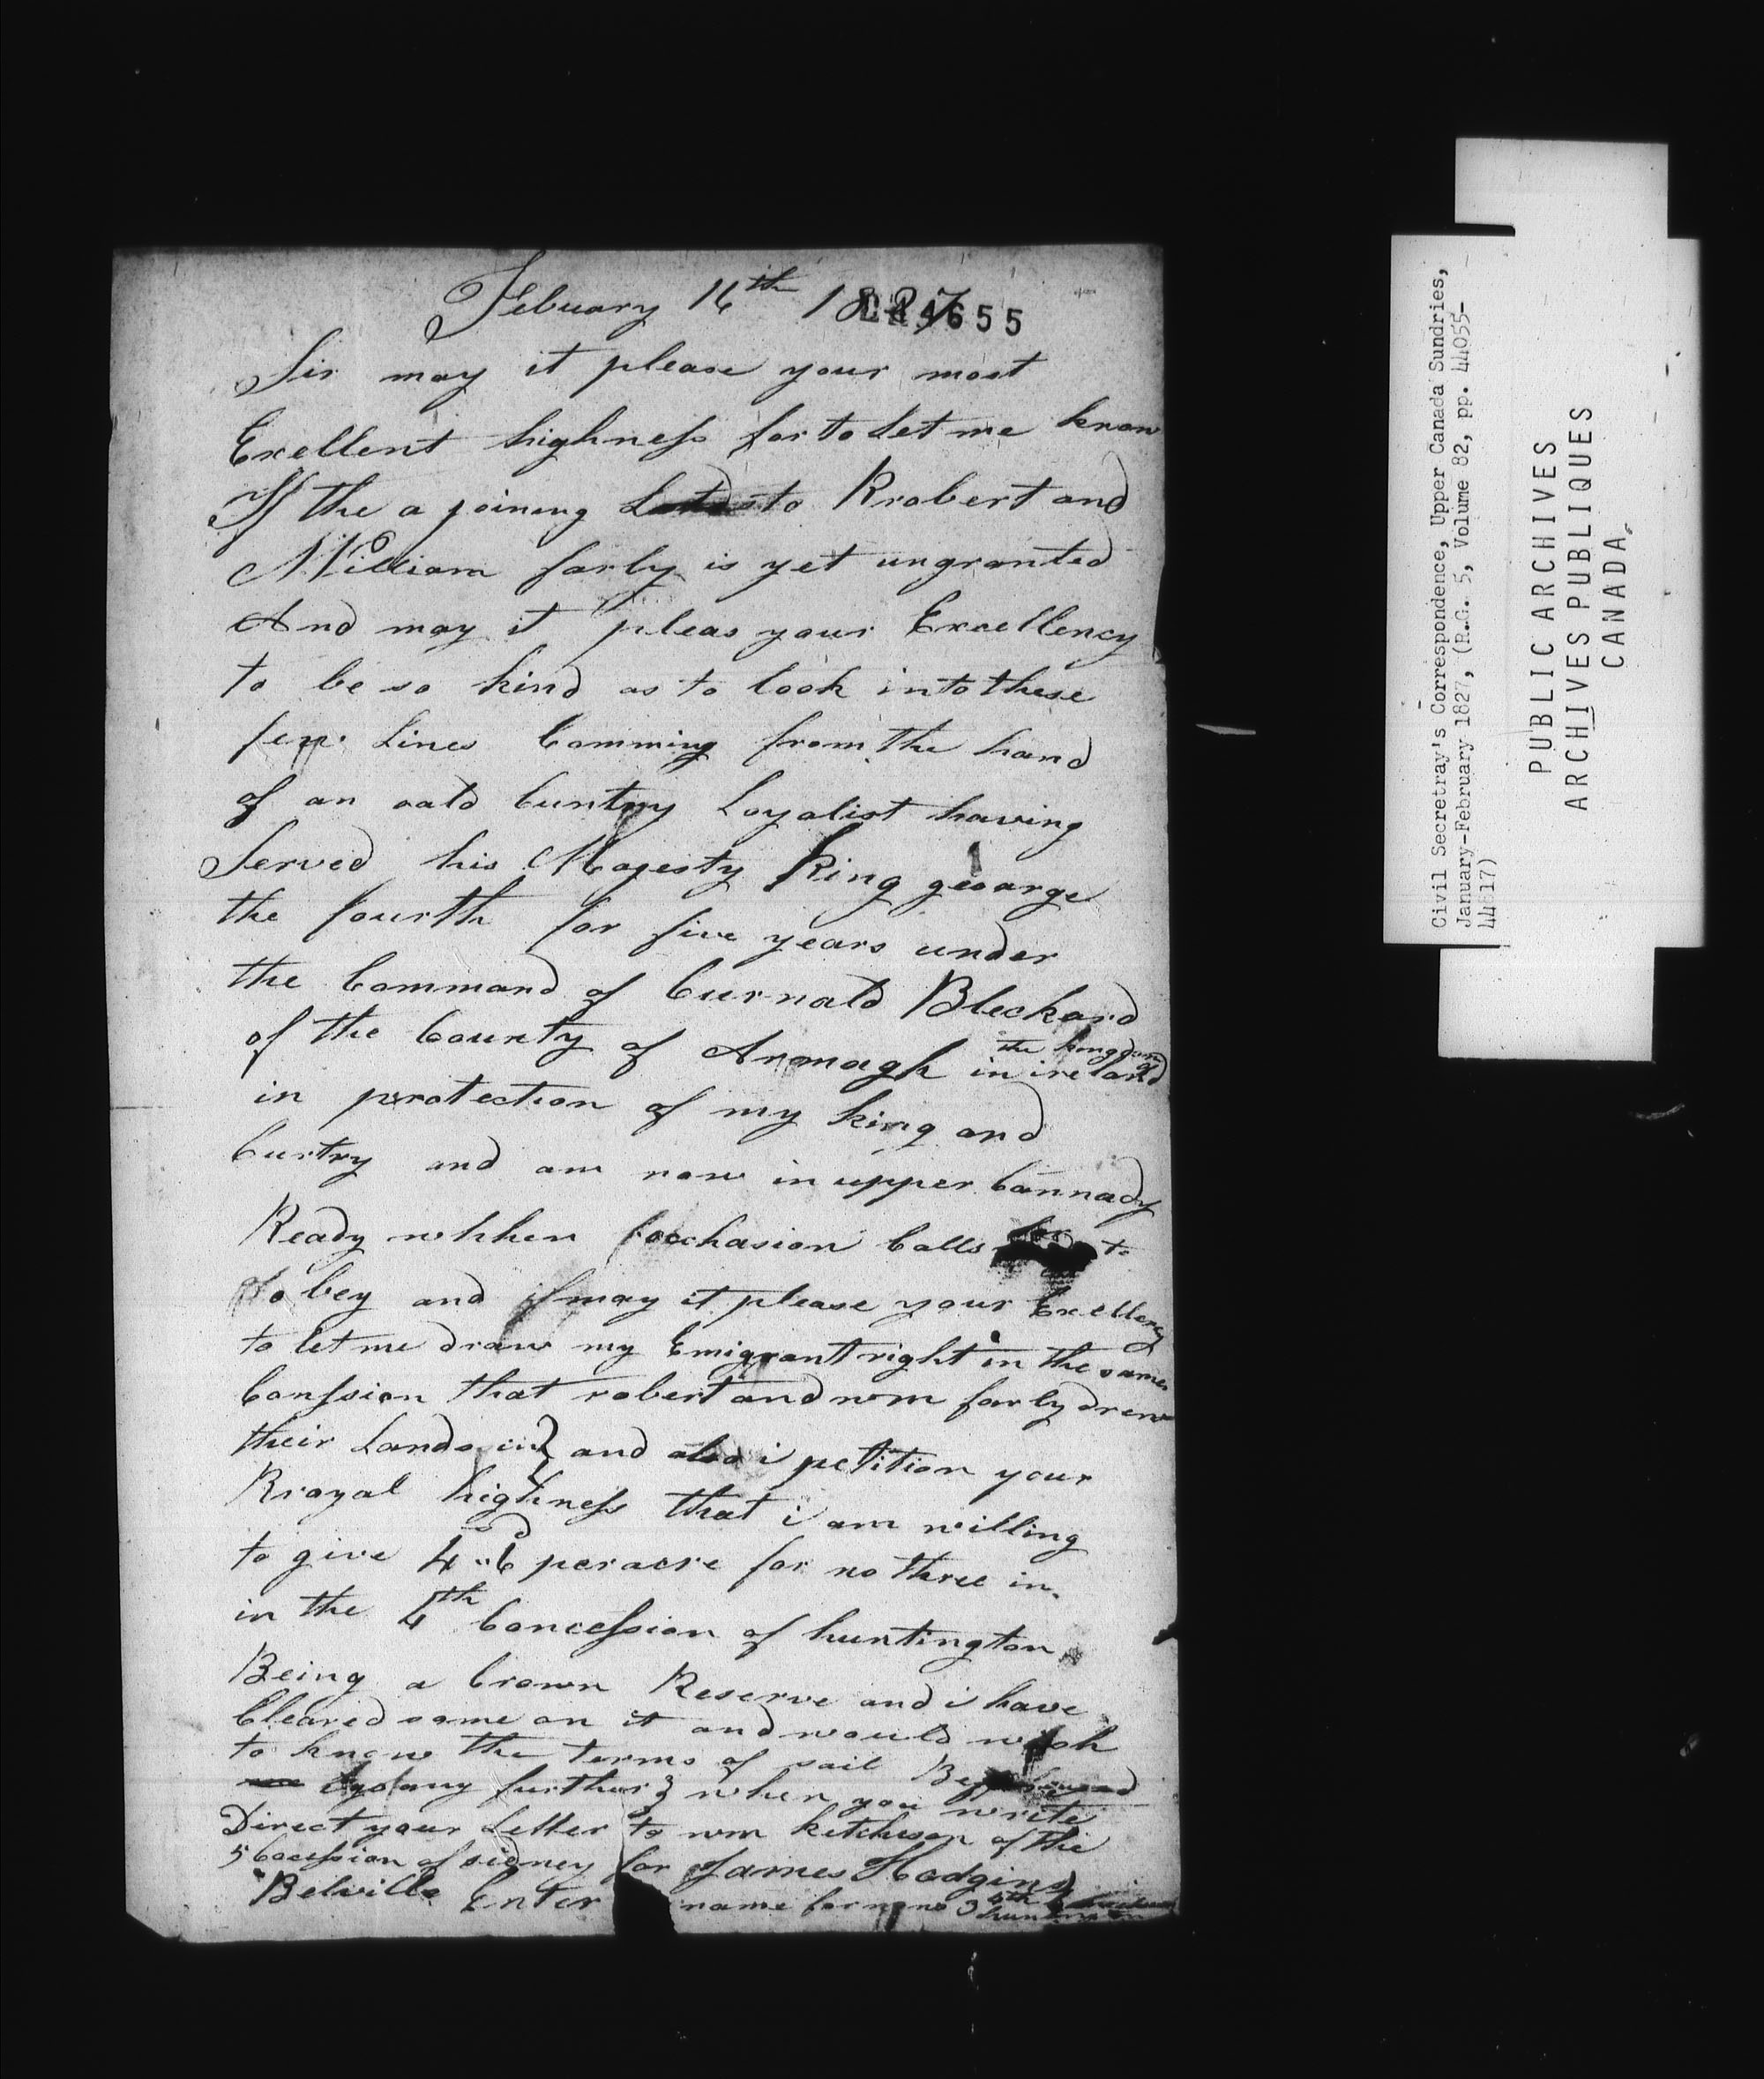 Febuary 16th 1827
44655
Sir may it please your most
Exellent highness for to let me know
If the a joining Lots to Rrobert and
William farly is yet ungranted
And may it pleas your Excellency
to be so kind as to look into these
few Lines Comming from the hand
of an oald Cuntry Loyalist having
Served his Magesty King gearge
the fourth for five years under
the Command of Curnald Bleckard
of the County of Armagh in the kingdom of ireland
in protection of my king and
Cuntry and am now in upper Cannady
Ready whhen occhasion Calls to
obey and if may it please your Exellency
to let me draw my Emigrant right in the same
Conssion that robert and wm farly drew
their Lands in and also i petition your
Rroyal highness that i am willing
to give 4 "6d per acre for no three in
in the 4th Concession of huntington
Being a Crown Reserve and i have
Cleared some on it and would wish
to know the terms of sail
any further when you write
Direct your Letter to wm ketcheson of the
5 Cocession of sidney for James Hodgins
Belville Enter name for no 3 4th
huntington
Civil Secretray's Correspondence, Upper Canada Sundries,
January-February 1827, (R.G. 5, Volume 82, pp. 44055-
44617)
PUBLIC ARCHIVES
ARCHIVES PUBLIQUES
CANADA